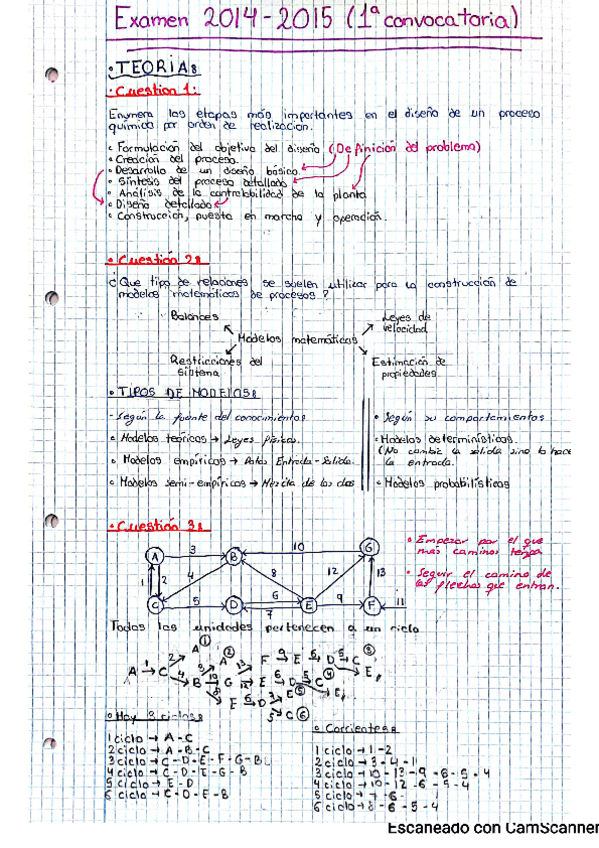 Examen 2014-2015 (1ª convocatoria)
• TEORÍA:
• Cuestion 1:
Enumera las etapas más importantes en el diseño de un proceso
químico por orden de realización.
• Formulación del objetivo del diseño (Definición del problema)
• Creación del proceso.
• Desarrollo de un diseño básico.
• Síntesis del proceso detallado
• Análisis de la controlabilidad de la planta
• Diseño detallado
• Construcción, puesta en marcha y operación.
• Cuestión 2:
¿Que tipo de relaciones se suelen utilizar para la construcción de
modelos matemáticos de procesos?
Balances
Leyes de
velocidad
Modelos matemáticos
Restricciones del
sistema
Estimación de
propiedades
• TIPOS DE MODELOS:
- Según la fuente del conocimiento:
• Modelos teóricos → Leyes físicas.
• Modelos empíricos → Datos Entrada-Salida.
• Modelos semi-empíricos → Mezcla de los dos
• Según su comportamiento:
• Modelos determinísticos.
(No cambia la salida sino lo hace
la entrada.
• Modelos probabilísticos
• Cuestión 3:
• Empezar por el que
más caminos tenga
• Seguir el camino de
las flechas que entran.
A 3 B 10 G
1 2 4 8 12 13
C 5 D 6 7 E 9 F 11
Todas las unidades pertenecen a un ciclo
• Hay 3 ciclos:
1 ciclo → A-C
2 ciclo → A-B-C
3 ciclo → C-D-E-F-G-B
4 ciclo → C-D-E-G-B
5 ciclo → E-D
6 ciclo → C-D-E-B
• Corrientes:
1 ciclo → 1-2
2 ciclo → 3-4-1
3 ciclo → 10-13-9-6-5-4
4 ciclo → 10-12-6-5-4
5 ciclo → 7-6
6 ciclo → 8-6-5-4
Escaneado con CamScanner